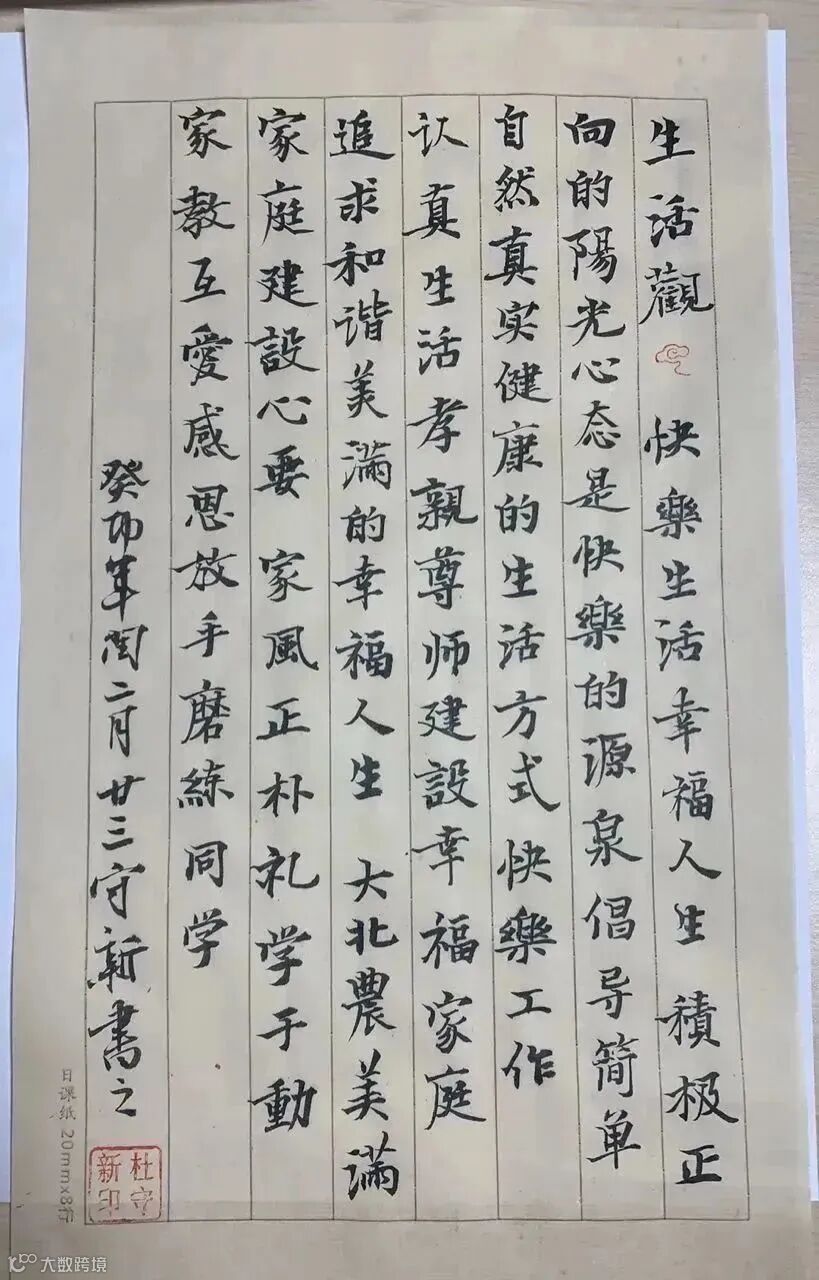 生活觀 快樂生活幸福人生 積极正
向的陽光心态是快樂的源泉倡导简单
自然真实健康的生活方式快樂工作
认真生活孝親尊师建設幸福家庭
追求和谐美满的幸福人生 大北農美满
家庭建設心要 家風正朴礼学于動
家教互愛感恩放手磨練同学
癸卯年閏二月廿三守新書之
杜守新印
日课纸 20mm×8行
大数跨境